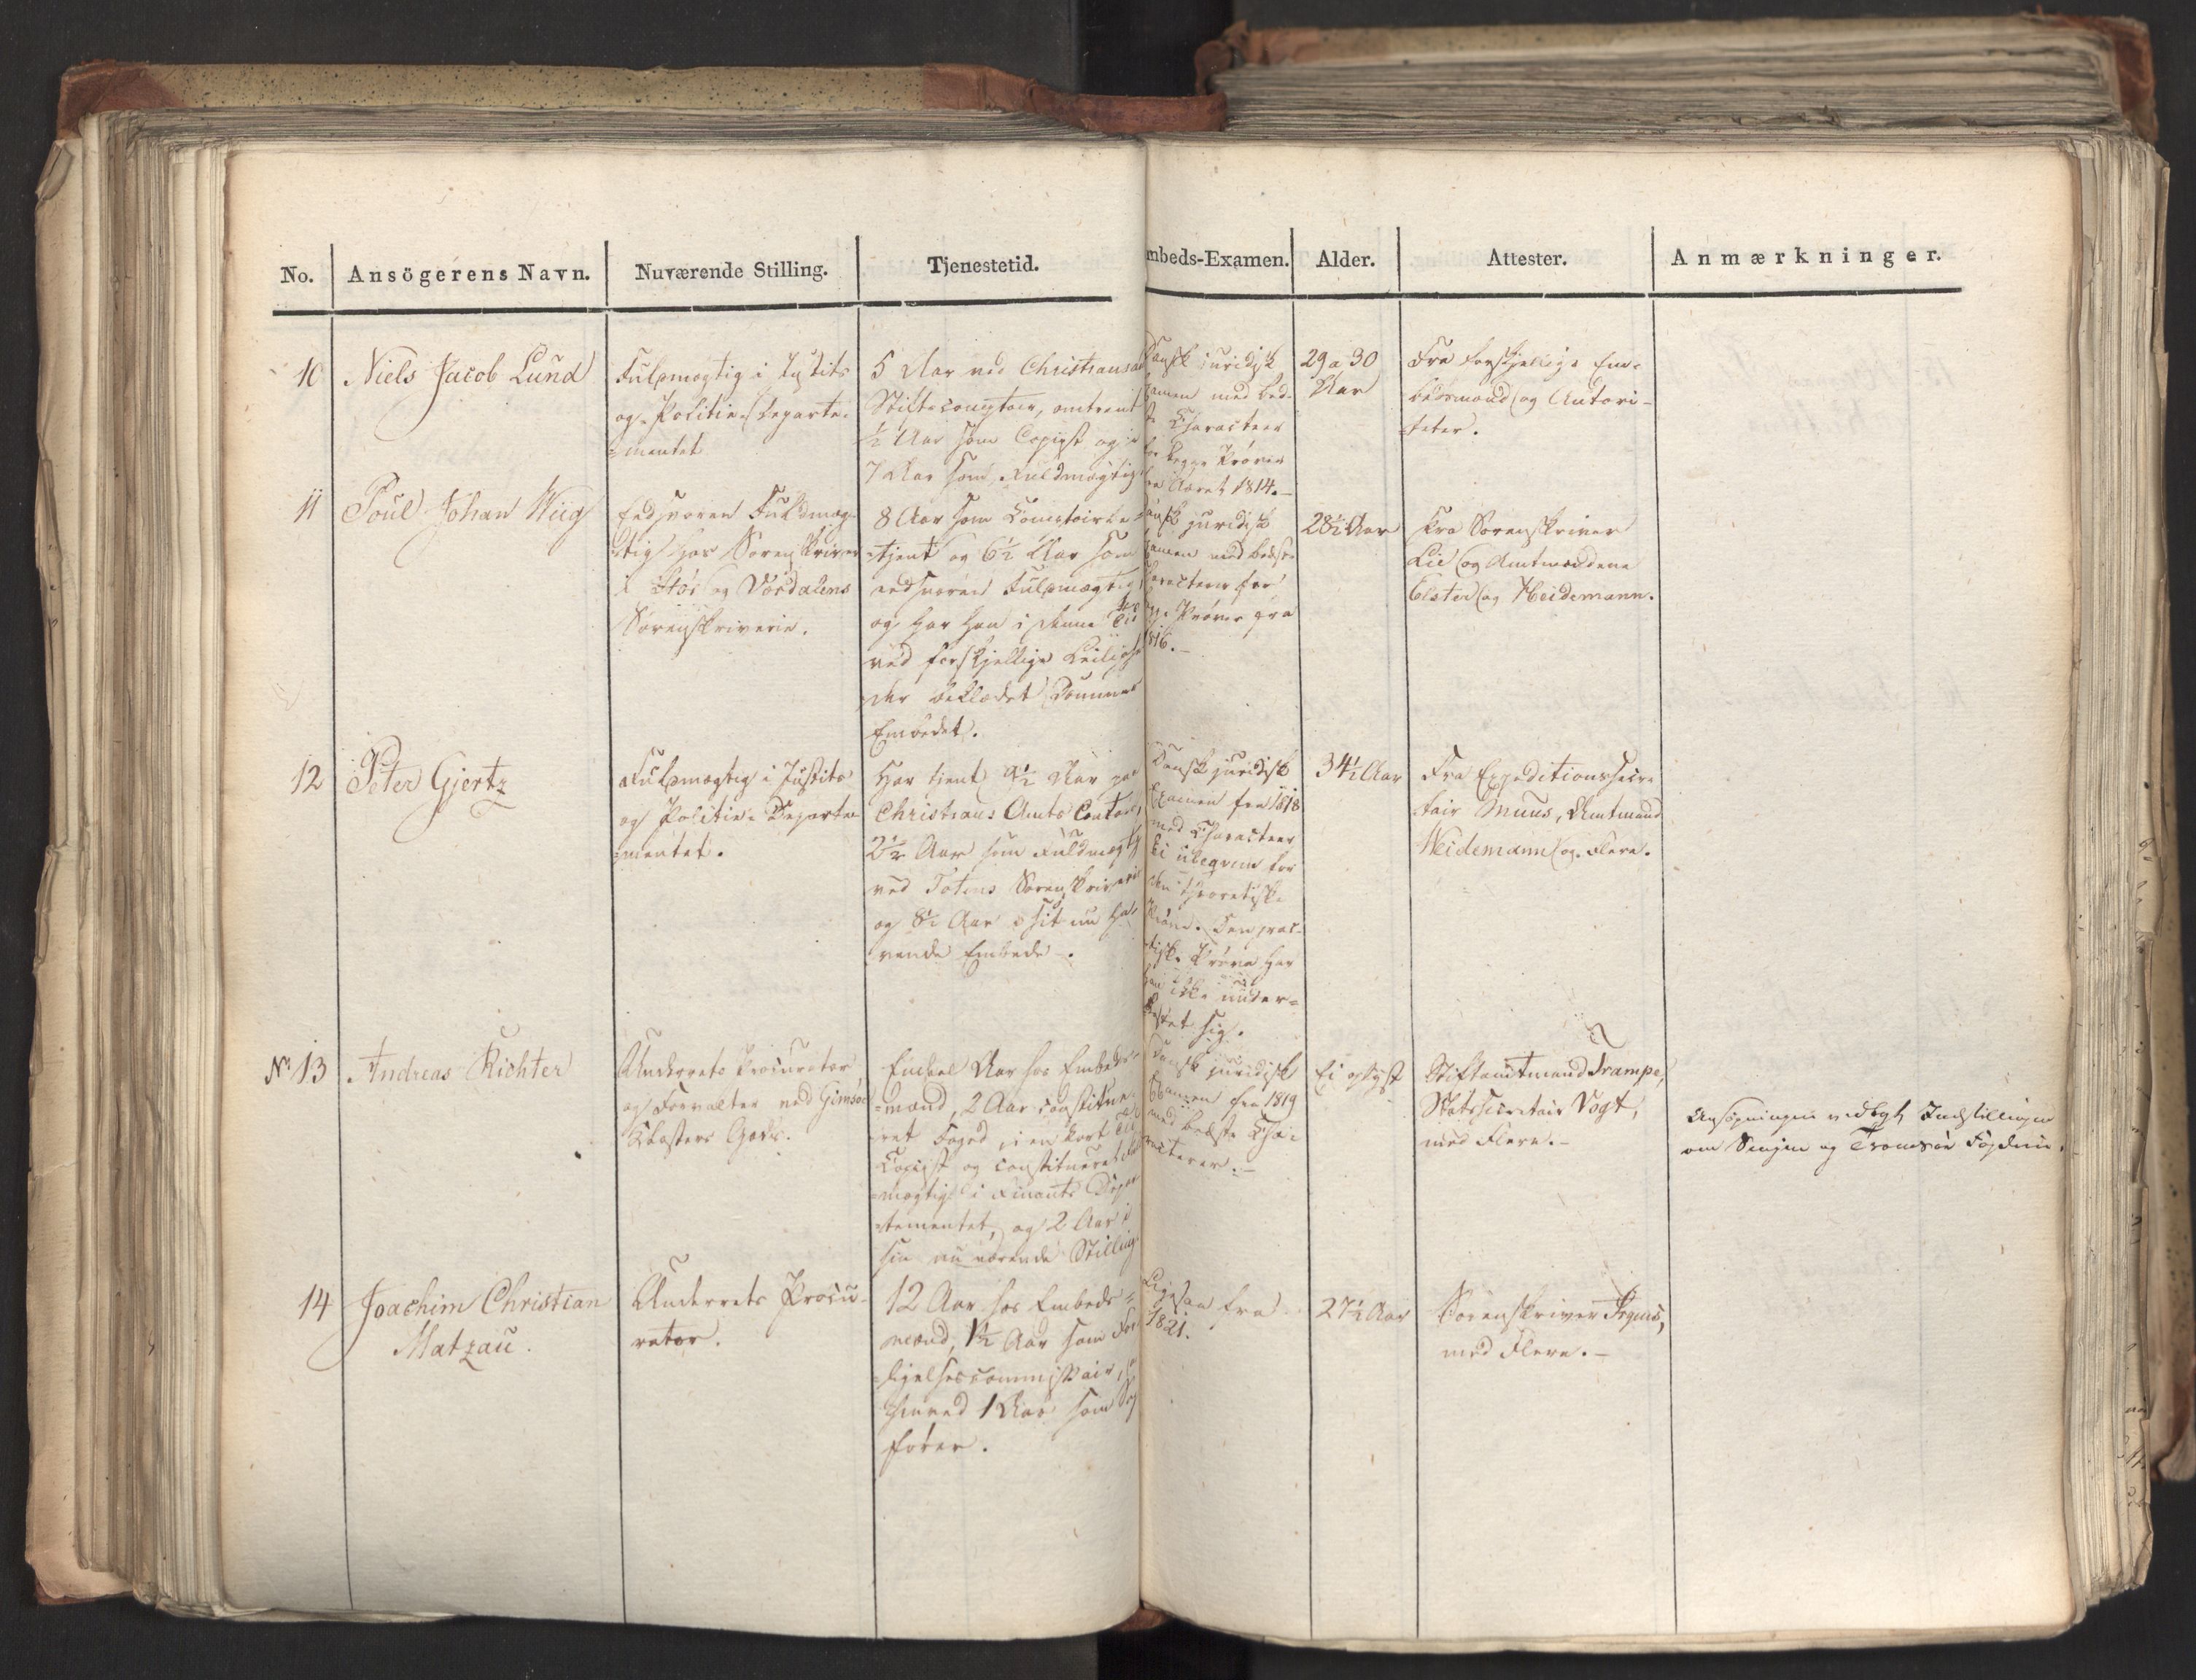 No. Ansögerens Navn. Nuværende Stilling. Tjenestetid. mbeds-Examen. Alder. Attester. Anmærkninger.
10
Niels Jacob Lund
Fulpmægtig i Justits
og Politie-Departe-
mentet
5 Aar ved Christiansa
Stiftscomptoir, omtrent
½ Aar som Copist og i
7 Aar som Fuldmægtig
Dansk juridisk
Examen med bed-
Characteer
for begge Prøver
fra Aaret 1814.-
29 a 30
Aar
Fra forskjellige Em-
bedsmænd og Autori-
teter.
11
Poul Johan Wiig
Edsvoren Fuldmæg-
tig hos Sorenskriver
i Stör og Værdalens
Sorenskriverie.
8 Aar som Comptoirbe-
tjent og 6½ Aar som
edsvoren Fulpmægtig,
og har han i denne Tid
ved forskjellige Leilighe
der beklædet Dommer
Embedet.
Dansk juridisk
Examen med bedste
Characteer for
Prøver fra
1816.-
28½ Aar
Fra Sorenskriver
Lie og Amtmændene
Elster og Heidemann.
12
Peter Gjertz
Fulpmægtig i Justits
og Politie-Departe-
mentet.
Har tjent 4½ Aar paa
Christians Amts Contoir,
2½ Aar som Fuldmægtig
ved Totens Sorenskriverie
og 8½ Aar i sit nu ha-
vende Embede.
Dansk juridisk
Examen fra 1818
med Characteer
ei ubeqvem for
den theoretiske
Prøve. Den prac-
tiske Prøve har
han ikke under-
kastet sig.
34½ Aar
Fra Expeditionssecre
tair Muus, Amtmand
Heidemann og Flere.
No 13
Andreas Richter
Underrets Procurator
og Forvalter ved Gimsöe
Klosters Gods.
Endeel Aar hos Embeds-
mænd, 2 Aar constitue-
ret Foged, i en kort Tid
Copist og constitueret Ful
mægtig i Finants Depar
tementet, og 2 Aar i
sin nu værende Stilling
Dansk juridisk
Examen fra 1819
med bedste Cha-
racterer.-
Ei oplyst
Stiftamtmand Trampe,
Statssecretair Vogt,
med Flere.-
Ansøgningen vedlagt Indstillingen
om Senjen og Tromsöe Fogderie.
14
Joachim Christian
Matzau.
Underrets Procu-
rator.
12 Aar hos Embeds-
mænd, 1½ Aar som For
ligelsescommissair,
henved 1 Aar som Sag
fører.
Ligesaa fra
1821.
27½ Aar
Sorenskriver Irgens,
med Flere.-